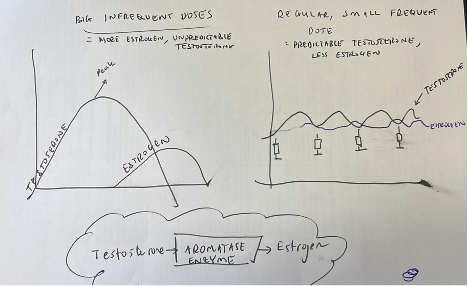 BIG INFREQUENT DOSES
= MORE ESTROGEN, UNPREDICTABLE
TESTOSTERONE
Peak
TESTOSTERONE
ESTROGEN
REGULAR, SMALL FREQUENT
DOSE
= PREDICTABLE TESTOSTERONE,
LESS ESTROGEN
TESTOSTERONE
ESTROGEN
Testosterone → AROMATASE ENZYME → Estrogen